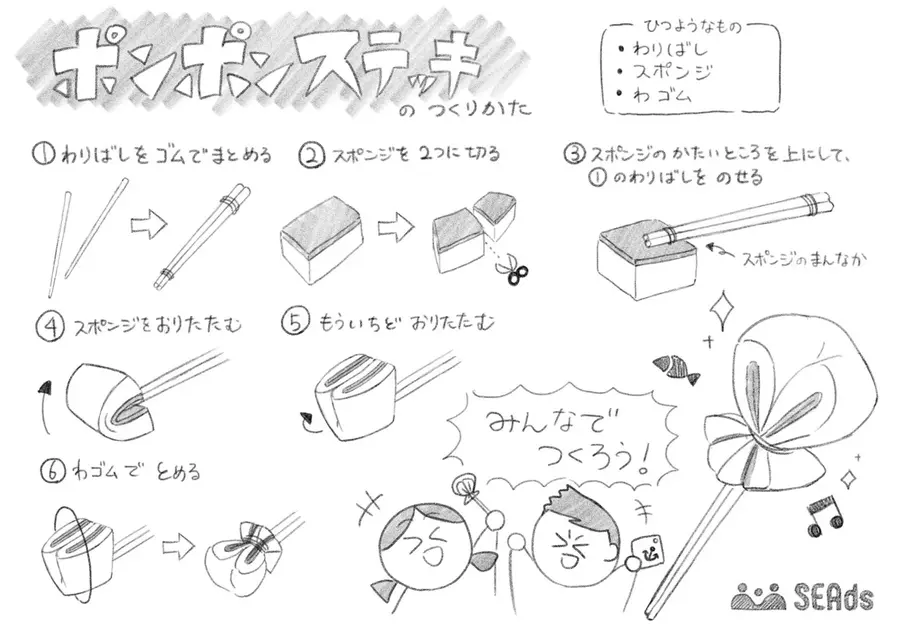 ポンポンステッキ
のつくりかた
ひつようなもの
・わりばし
・スポンジ
・わゴム
① わりばしをゴムでまとめる
② スポンジを2つに切る
③ スポンジのかたいところを上にして、
①のわりばしをのせる
スポンジのまんなか
④ スポンジをおりたたむ
⑤ もういちどおりたたむ
⑥ わゴムでとめる
みんなで
つくろう!
SEAds